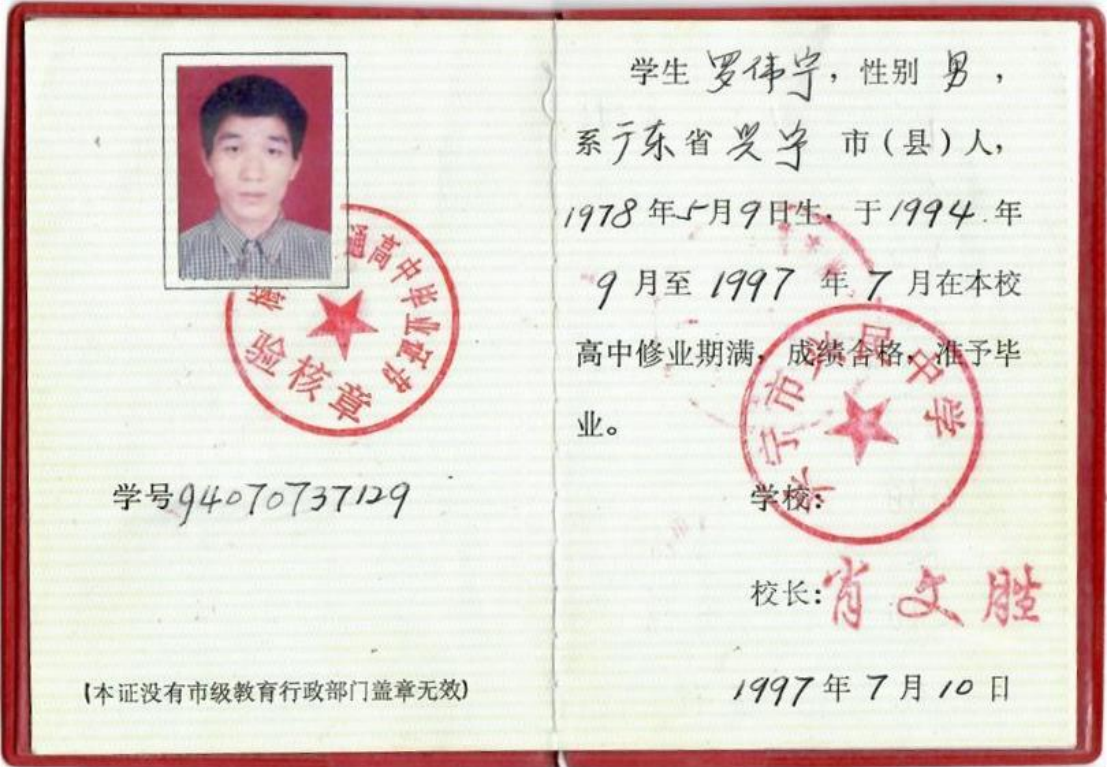 通高中毕业证书
验核章
学号94070737129
(本证没有市级教育行政部门盖章无效)
学生 罗伟宁，性别 男，
系广东省兴宁 市(县)人，
1978年5月9日生，于1994.年
9月至 1997 年 7 月在本校
高中修业期满，成绩合格，准予毕
业。
兴宁市 民中学
学校：
校长：肖文胜
1997年7月10日